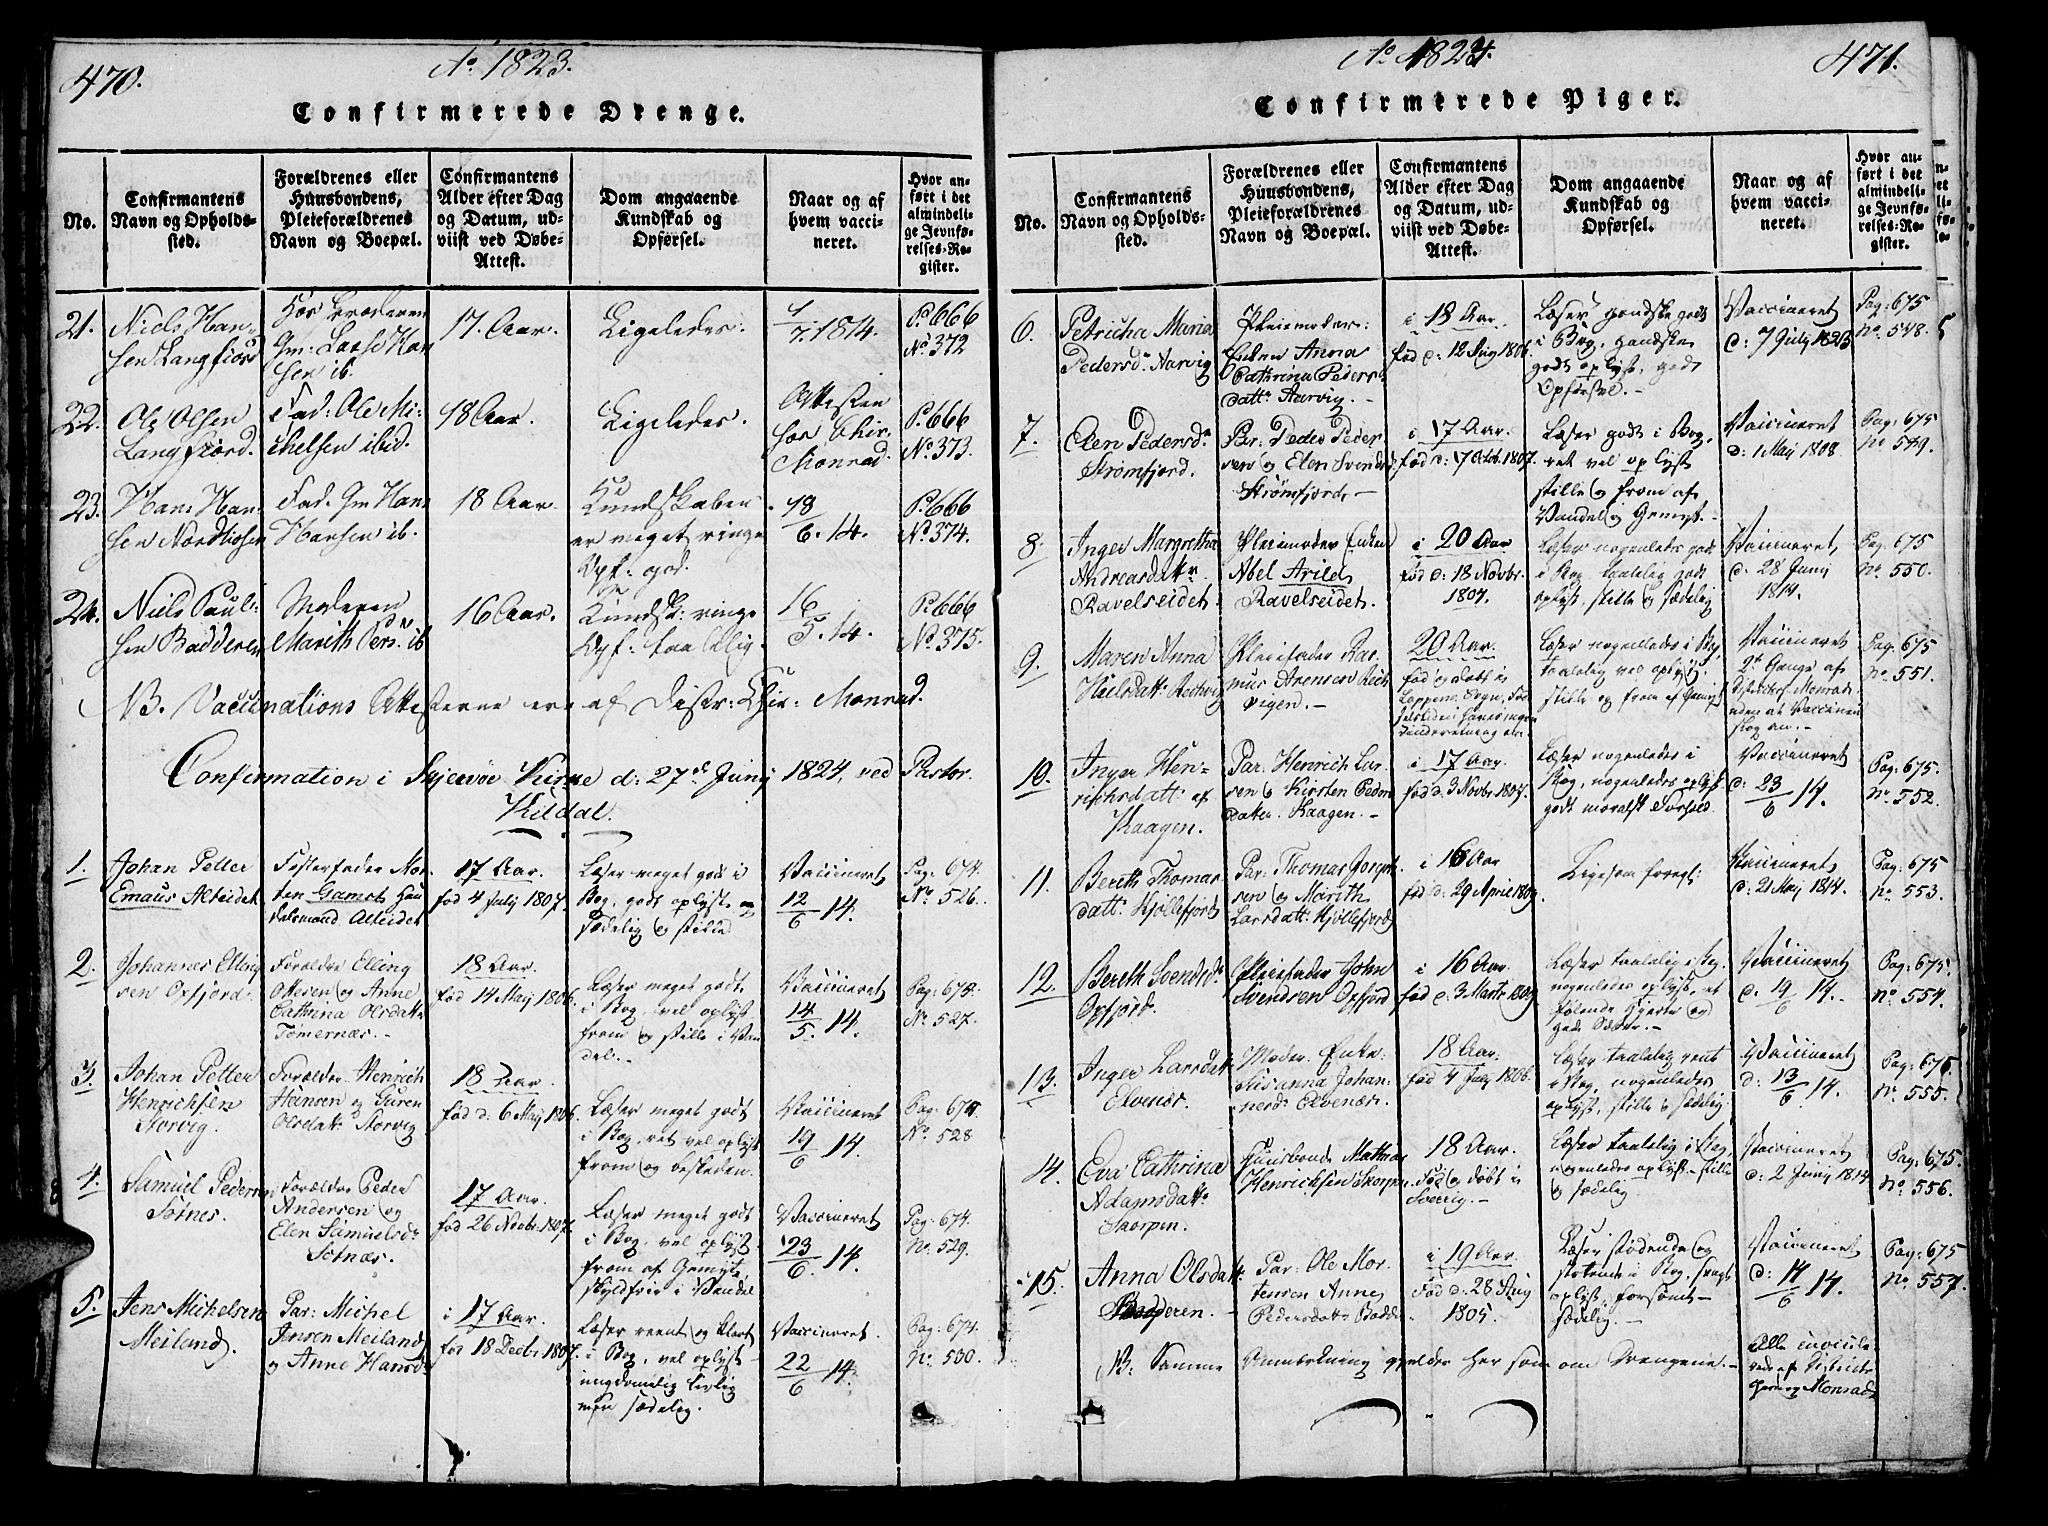 470.
Ao 1823.
Confirmerede Drenge.
No.
Confirmantens
Navn og Opholds-
sted.
Forældrenes eller
Huusbondens,
Pleieforældrenes
Navn og Boepæl.
Confirmantens
Alder efter Dag
og Datum, ud-
viist ved Døbe-
Attest.
Dom angaaende
Kundskab og
Opførsel.
Naar og af
hvem vacci-
neret.
Hvor an-
ført i det
almindeli-
ge Jevnfø-
relses-Re-
gister.
21.
Niels Han-
sen Langfiord
Hos Broderen
Gm: Lasse Han
sen ib.
17. Aar.
Ligeledes.
7. 1814.
P. 666
No 372
22.
Ole Olsen
Langfiord.
Fad: Ole Mi-
chelsen ibid.
18 Aar.
Ligeledes.
Attesten
hos Chir.
Monrad.
P. 666
No. 373.
23.
Hans Han
sen Nordtiosen
Fad. Gm Hans
Hansen ib.
18 Aar.
Kundskaben
er meget ringe
Opf: god.
18
6. 14.
P. 666
No. 374.
24.
Niels Paul-
sen Badderen
Moderen
Marith Pers. ib
16 Aar.
Kundsk: ringe
Opf: taalelig.
16
5. 14.
P. 666
No. 375.
NB. Vaccinations Attesterne ere af Distr: Chir: Monrad.
Confirmation i Skjervøe Kirke d: 27de Junij 1824, ved Pastor
Kildal.
1.
Johan Petter
Emaus Alteidet
Fosterfader Mor-
ten Gamst Han
delsmand Alteidet
17 Aar.
fød 4 July 1807.
Læser meget godt i
Bog, godt oplyst,
Sædelig og stille
Vaccineret
12
6 14.
Pag: 674.
No. 526.
2.
Johannes Elling
sen Oxfjord.
Forældre Elling
Ottesen og Anne
Cathrina Olsdatt.
Tømernæs.
18 Aar.
fød 14 Maij 1806.
Læser meget godt
i Bog, vel oplyst
from og stille i Van
del.
Vaccineret
14
5. 14.
Pag: 674.
No. 527.
3.
Johan Petter
Henrichsen
Storvig.
Forældre Henrich
Hansen og Guren
Olsdatt. Storvig
18 Aar.
fød d. 6 Maij 1806.
Læser meget godt
i Bog, ret vel oplyst
from og beskeden.
Vaccineret
19
6 14.
Pag: 674
No. 528
4.
Samuel Pedersen
Sotnes.
Forældre Peder
Andersen og
Elen Samuelsd.
Sotnæs.
17 Aar.
fød 26 Novbr. 1807.
Læser meget godt
i Bog, vel oplyst
from af Gemyt,
skyldfrie i Vandel
Vaccineret
23
6. 14.
Pag: 674.
No. 529.
5.
Jens Michelsen
Meiland.
Par: Michel
Jensen Meiland
og Anne Hansd.
i 17 Aar.
fød 18 Decbr 1807.
Læser reent og klart
i Bog, vel oplyst
ungdomelig livlig
men sædelig.
Vaccineret.
22
6 14.
Pag: 674.
No. 530.
471.
Ao 1824.
Confirmerede Piger.
No.
Confirmantens
Navn og Opholds-
sted.
Forældrenes eller
Huusbondens,
Pleieforældrenes
Navn og Boepæl.
Confirmantens
Alder efter Dag
og Datum, ud-
viist ved Døbe-
Attest.
Dom angaaende
Kundskab og
Opførsel.
Naar og af
hvem vacci-
neret.
Hvor an-
ført i det
almindeli-
ge Jevnfø-
relses-Re-
gister.
6.
Petricha Maria
Pedersd. Aarvig
Pleiemoder:
Enken Anna
Cathrina Peders
datt. Aarvig.
i 18 Aar.
fød d: 12 Aug 1806.
Læser gandske godt
i Bog, gandske
godt oplyst, godt
Opførsel.
Vaccineret
d: 7 July 1823
Pag: 675
No. 548.
7.
Elen Pedersd.
Strømfjord.
Par: Peder Peder
sen og Elen Svendsd
Strømfjord.
i 17 Aar.
fød d: 7 Octb. 1807.
Læser godt i Bog,
ret vel oplyst
stille og from af
Vandel og Gemyt.
Vaccineret
d: 1 Maij 1808
Pag: 675
No 549.
8.
Inger Margretha
Andreasdatter
Ravelseidet.
Pleiemoder Enken
Abel Arild
Ravelseidet.
i 20 Aar
fød d: 18 Novbr.
1804.
Læser nogenledes godt
i Bog, taalelig godt
oplyst, stille og sædelig
Vaccineret,
d. 28 Junij
1814.
Pag: 675
No. 550.
9.
Maren Anna
Nielsdatt. Reitvig
Pleiefader Ras-
mus Arensen Reit
vigen.
20 Aar.
fød og døbt i
Loppens Sogn,
Læser nogenledes i Bog,
taalelig vel oplyst,
stille og from af Gemyt
Vaccineret
2de Gange af
Monrad
Pag. 675
No. 551.
10.
Inger Hen-
richsdatt. af
Kaagen.
Par. Henrich Lar
sen og Kirsten Peders
datter. Kaagen.
i 17 Aar
fød d. 3 Novbr. 1807.
Læser nogenledes i
Bog, nogenledes oplyst
godt moralsk Forhold.
Vaccineret
d: 23
6 14.
Pag: 675.
No. 552.
11.
Bereth Thomas
datt. Kjøllefjord
Par: Thomas Joseph
sen og Marith
Larsdatt. Kjøllefjord
i 16 Aar
fød d: 29 April 1809.
Ligesom foregt:
Vaccineret
d: 21 Maij 1814.
Pag: 675
No. 553.
12.
Bereth Svendsd.
Oxfjord.
Pleiefader John
Svendsen Oxfjord
i 16 Aar.
fød d. 3 Marts 1809
Læser taalelig i Bog,
nogenledes oplyst, et
følende Hjerte og
gode Sæder.
Vaccineret
d: 19
6 14.
Pag: 675.
No. 554.
13.
Inger Larsdatt.
Elvenæs.
Moder. Enke
Susanna Johan
nesd. Elvenæs.
18 Aar.
fød 4 July 1806.
Læser taalelig rent
i Bog, nogenledes
oplyst, stille og sædelig
Vaccineret
d: 13
6 14.
Pag: 675.
No. 555.
14.
Eva Cathrina
Adamsdatt.
Skorpen.
Huusbonde Mathias
Henrichsen Skorpen.
18 Aar.
Fød og døbt i
Sverrig.
Læser taalelig i Bog,
nogenledes oplyst, stille
og sædelig
Vaccineret
d: 2 Junij 1814
Pag: 675.
No. 556.
15.
Anna Olsdatt.
Badderen.
Par: Ole Mor
tensen Anne
Pedersdatt. Badd.
i 19 Aar.
fød d. 28 Aug
1805.
Læser stødende og
i Bog, svagt
oplyst, forsonet
sædelig.
Vaccineret
d: 14
6 14.
Pag: 675
No. 557.
NB: Samme Anmerkning gjelder her som om Drengene.
Alle
vede af Districts
Monrad